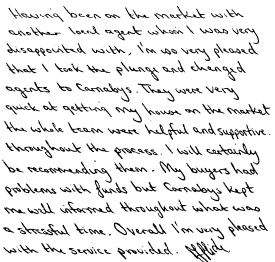 Having been on the market with
another local agent whom I was very
disappointed with, I'm so very pleased
that I took the plunge and changed
agents to Carnabys. They were very
quick at getting my house on the market
the whole team were helpful and supportive.
throughout the process. I will certainly
be recommending them. My buyers had
problems with funds but Carnabys kept
me well informed throughout what was
a stressful time. Overall I'm very pleased
with the service provided.